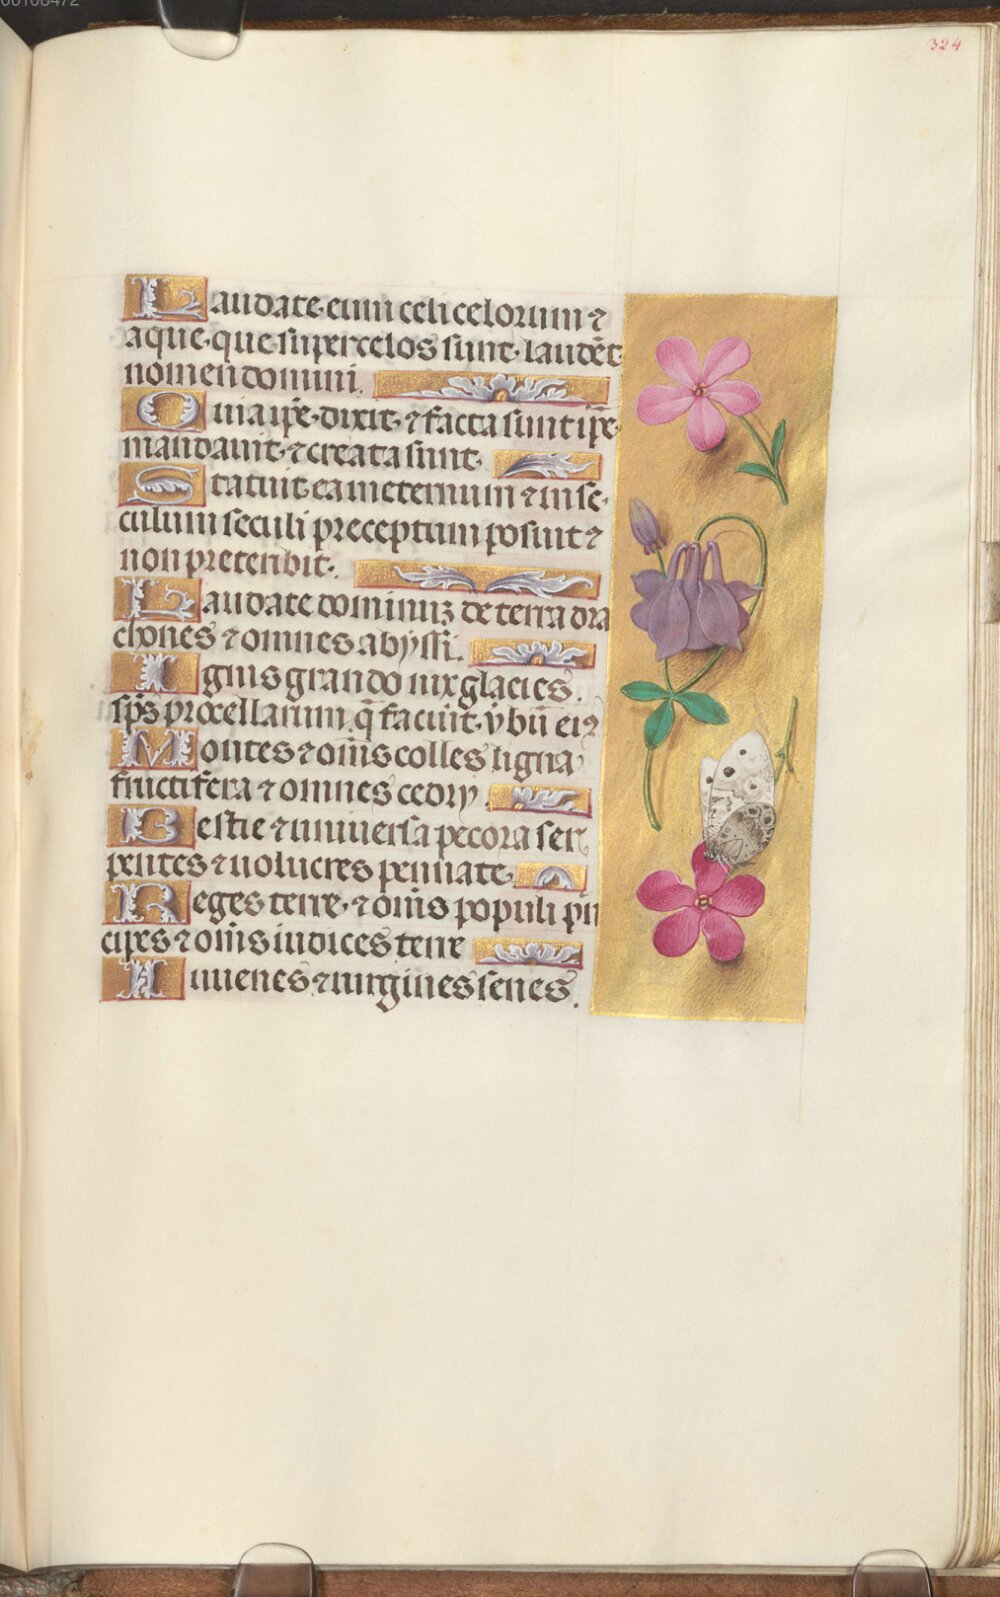 00108472
324
Laudate eum celi celorum ⁊
aque que super celos sunt laudēt
nomen domini.
Quia ip̄e dixit ⁊ facta sunt ip̄e
mandauit ⁊ creata sunt.
Statuit ea in eternum ⁊ in se-
culum seculi preceptum posuit ⁊
non preteribit.
Laudate dominuꝫ de terra dra
chones ⁊ omnes abyssi.
Ignis grando nix glacies
sp̄s procellarum q̄ faciūt v̄bū eiꝰ
Montes ⁊ om̄s colles ligna
fructifera ⁊ omnes cedry.
Bestie ⁊ uniuersa pecora ser
pentes ⁊ uolucres pennate.
Reges terre ⁊ om̄s populi pn
cipes ⁊ om̄s iudices terre
Iuuenes ⁊ uirgines senes.